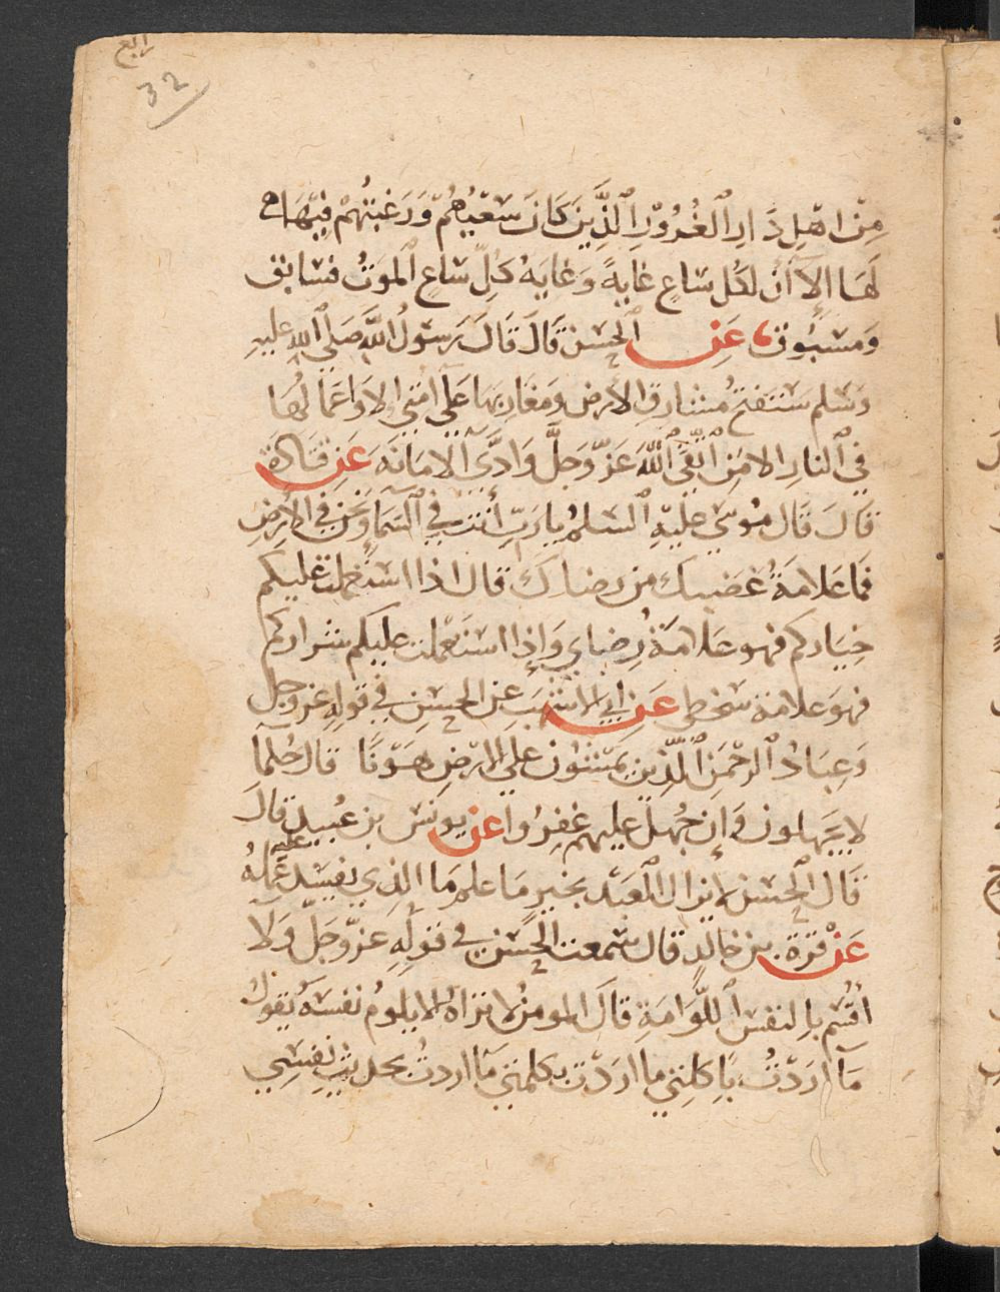 رابع
32
مِنْ اهْلِ دَارِ الغُرُوْرِ الَّذِينَ كَانَ سَعْيُهُمْ وَرَغبَتُهُمْ فِيْهَا
لَهَا إِلاَّ اَنْ لكُل سَاعٍ غايةً وَغايَةُ كلِّ سَاعٍ الموَتُ فسَابق
وَمسْبُوق عَنِ الحسَن قَالَ قَالَ رَسوُلُ اللَّهِ صَلى اللهِ عليهِ
وَسَلم سَتَفتحُ مشَارقِ الأرضِ وَمغَاربهَا عَلَى امّتِي الا وَاعمَالُهَا
في النارِ الا مَنِ اتّقَى اللهَ عَزّ وَجَلَّ وَادَّى الامَانَه عَن قتَادة
قَالَ قَال مُوسَى عليْهِ السلمُ يا رَبّ أنتَ في السّمَا وَنحن في الأرضِ
فما عَلامَةُ غضَبك من رضاك قال اذا استَعْملت عَليكم
خيَاركم فهو علَامَةُ رِضايَ وَإذا استَعْملت عليكم شرَاركم
فهوَ علامَة سَخطي عَن ابي الاشهَب عَن الحسَنِ في قولهِ عَز وَجل
وَعِبَادُ الرحْمَنِ الَّذِينَ يمْشُون علَى الارْضِ هَوْنًا قال حُلمَا
لا يجَهلون وَإن جُهلَ عليهم غفرُوا عَن يونس بن عُبيد قالَ
قَال الحسَن لا يزال العَبد بخيرٍ مَا علمَ مَا الذي يفسِد عليه عَملهُ
عَنْ قرّة بن خالدٍ قال سَمعت الحسَن في قولهِ عزّ وَجَلّ وَلآ
أُقْسِم بِالنفس اللَّوَّامَةِ قَالَ المومنُ لا تراهُ الا يلومُ نفسَهُ يَقولُ
مَآ أرَدْتُ بأكلتي ما اردْت بكلمتي مَا اردتُ بحديثِ نفسِي